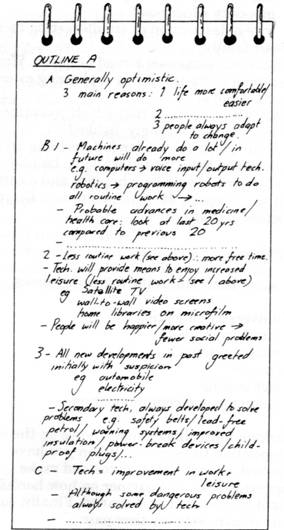 OUTLINE A
A Generally optimistic.
3 main reasons: 1 life more comfortable/
easier
2 ...............
3 people always adapt
to change.
B 1 - Machines already do a lot / in
future will do more
e.g. computers → voice input/output tech.
robotics → programming robots to do
all routine work → ...
- Probable advances in medicine/
health care: look at last 20 yrs
compared to previous 20
- ...............
2 - Less routine work (see above) ∴ more free time.
- Tech. will provide means to enjoy increased
leisure (less routine work - see 1 above)
eg Satellite TV
wall-to-wall video screens
home libraries on microfilm
- People will be happier/more creative →
fewer social problems
3 - All new developments in past greeted
initially with suspicion
eg automobile
electricity
- Secondary tech. always developed to solve
problems e.g. safety belts/lead-free
petrol/warning systems/improved
insulation/power-break devices/child-
proof plugs/...
C - Tech = improvement in work +
leisure
- Although some dangerous problems
always solved by tech
- ...............